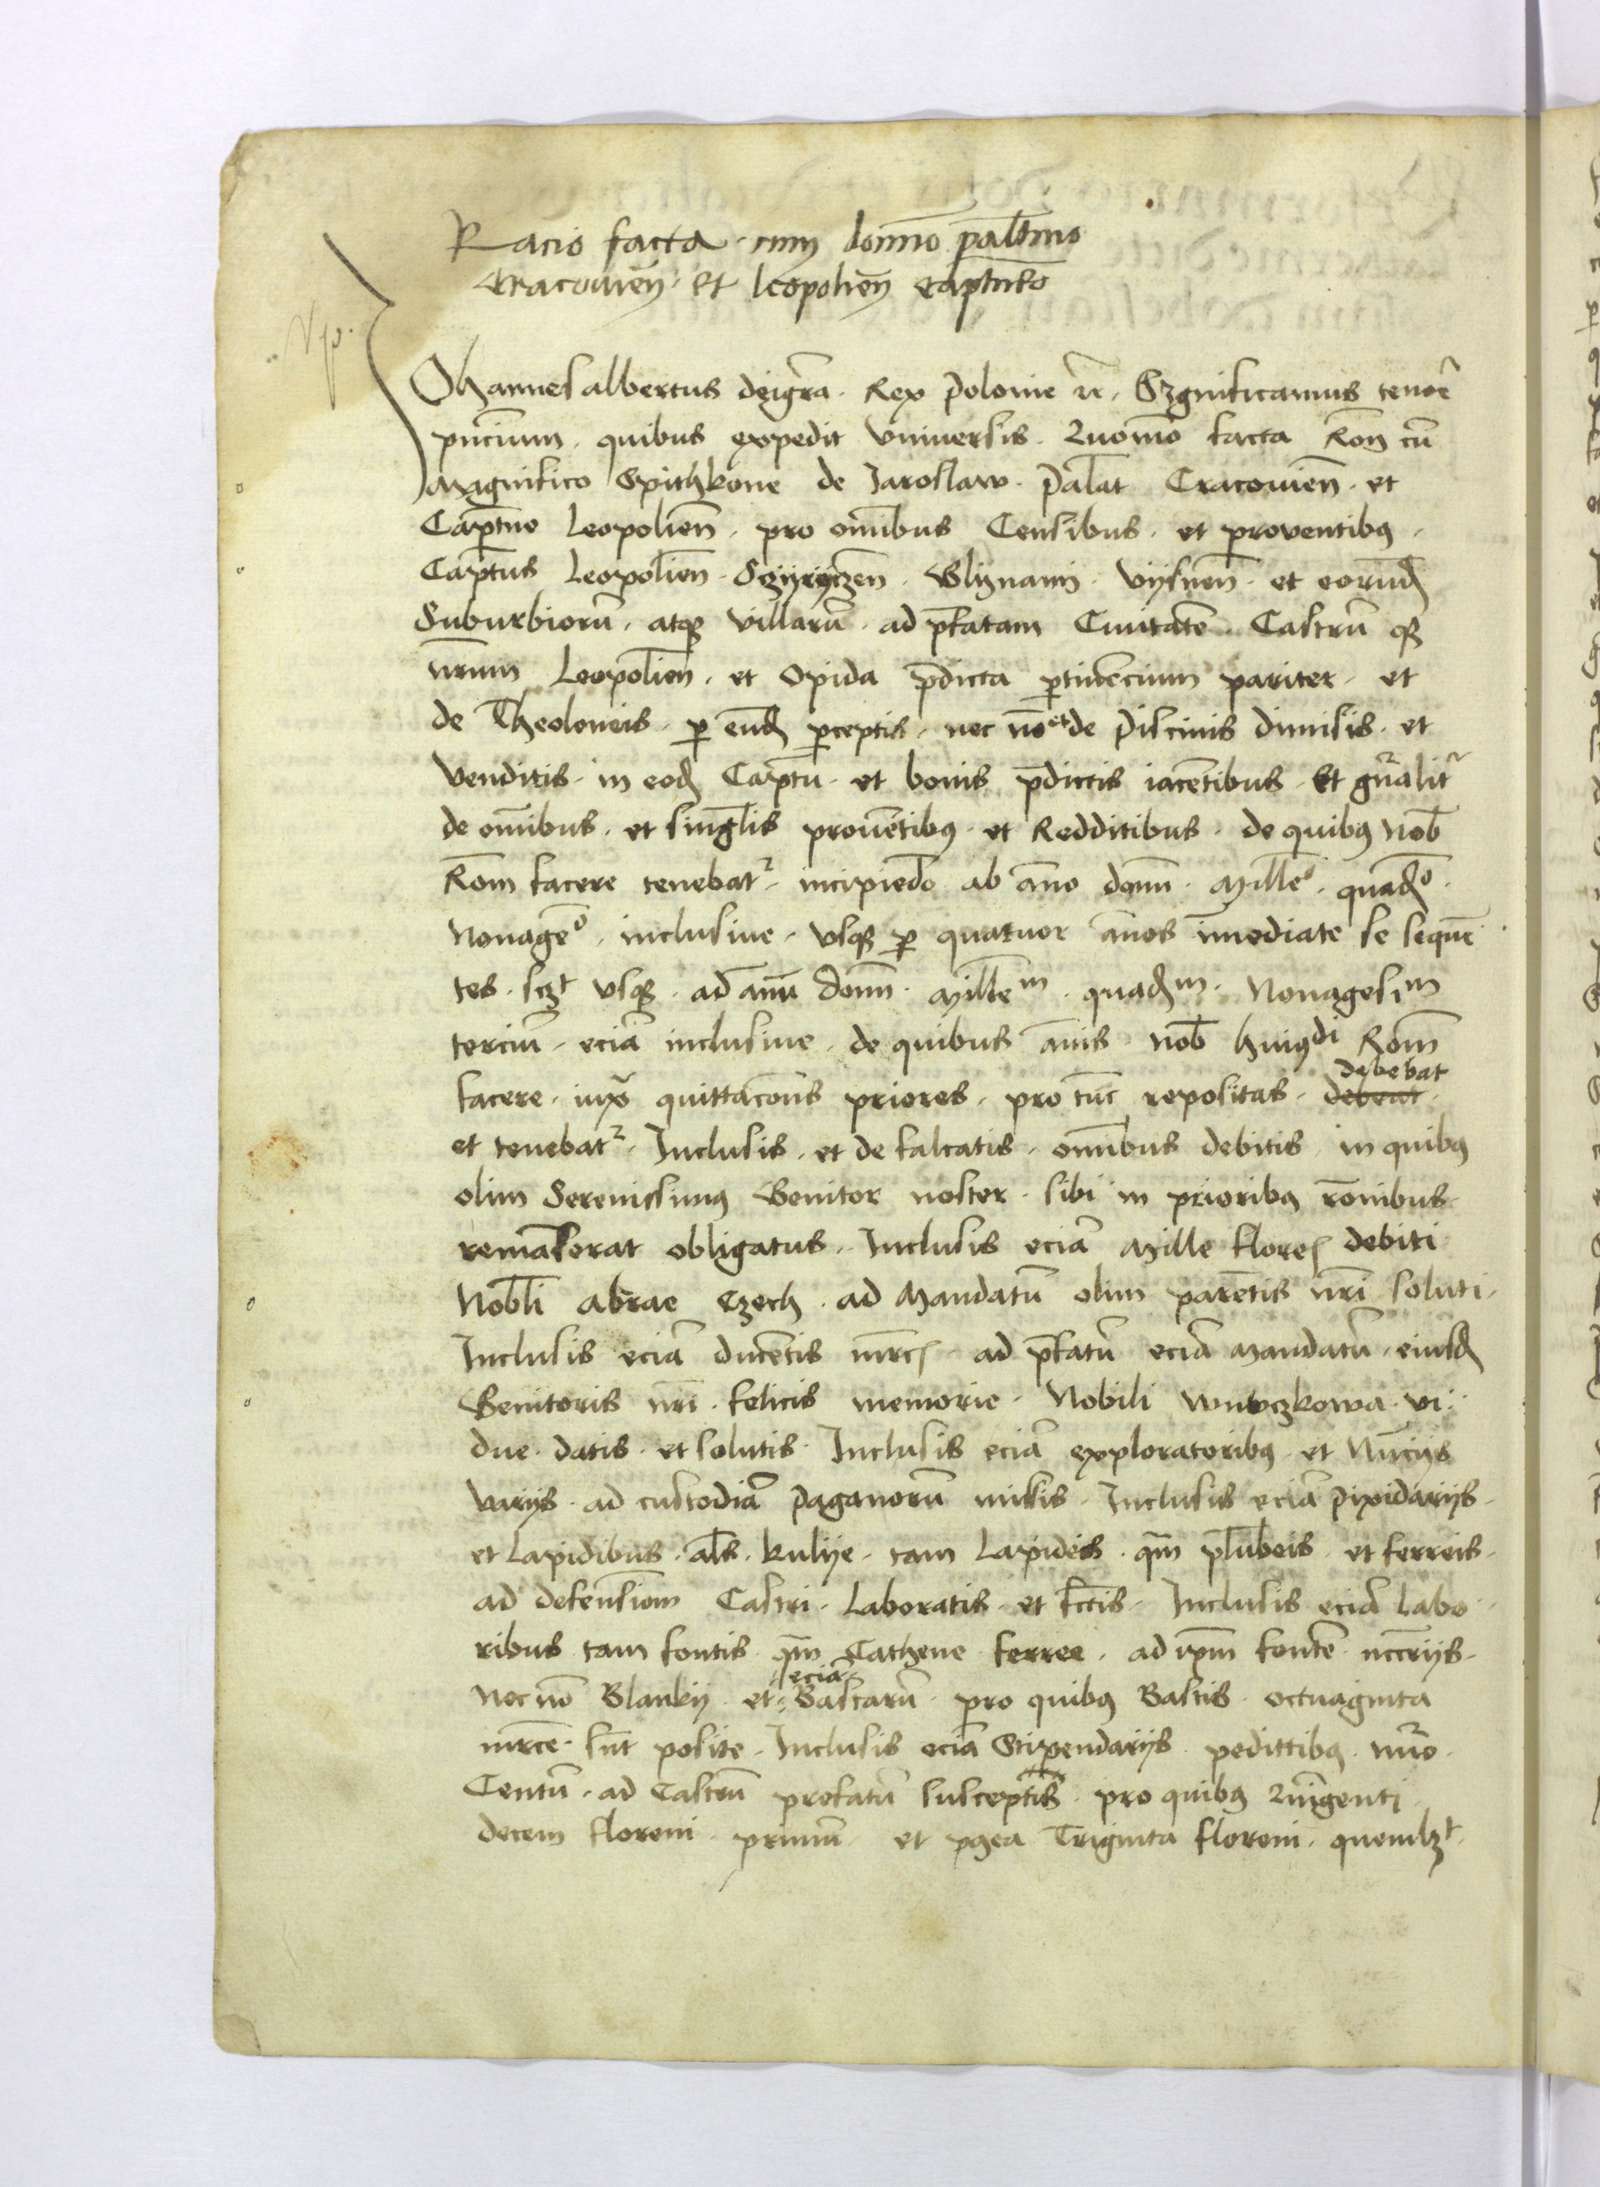 Racio facta cum domno palatno
Cracovien et leopolien captneo
Johannes albertus deigra Rex Polonie rc Significamus tenore
pncium quibus expedit Universis Quomo facta Ron cu
Magnifico Spithkone de Jaroslaw Palat Cracovien et
Captneo Leopolien pro omibus Censibus et proventibus
Captus Leopolien Sczyryczen Gliznani et eorund
Suburbioru atque villaru ad pfatam Civitate Castru que
nrum Leopolien et Opida pdicta ptinencium pariter et
de Theoloneis p eund pceptis nec no et de Piscinis dimisis et
venditis in eod Captu et bonis pdictis iacetibus Et gnralitr
de omibus et singlis proventibus et Redditibus de quibus nob
Rom facere tenebatr incipiedo ab anno domi Mille quado
Nonageo inclusive usque p quatuor annos imediate se seque
tes sczt usque ad annu domi Millem quadm Nonagesim
terciu ecia inclusive de quibus annis nob huiusdi Rom
facere iuxa quittacons priores pro tuc repositas debeat debebat
et tenebatr Inclusis et defalcatis omibus debitis in quibus
olim Serenissimus Genitor noster sibi in prioribus ronibus
remaserat obligatus Inclusis ecia Mille flores debiti
Nobli Abrae Czech ad Mandatu olim paretis nri soluti
Inclusis ecia ducetis mrcs ad pfatu ecia mandatu eiusd
Genitoris nri felicis memorie Nobili Wnuczkowa vi
due datis et solutis Inclusis ecia exploratoribus et Nuciys
variys ad custodia Paganoru missis Inclusis ecia Pixidariys
et Lapidibus als kulye tam Lapideis qm plubeis et ferreis
ad defensiom Castri Laboratis et fctis Inclusis ecia labo
ribus tam fontis qm Cathene ferree ad ipm fonte nccriys
Nec no Blanky et ecia Bastaru pro quibus Bastis octuaginta
mrce sut posite Inclusis ecia Stipendariys pedittibus nuro
Centu ad Castru prefatu susceptis pro quibus Quingenti
decem floreni primu et pzea Triginta floreni quemlzt